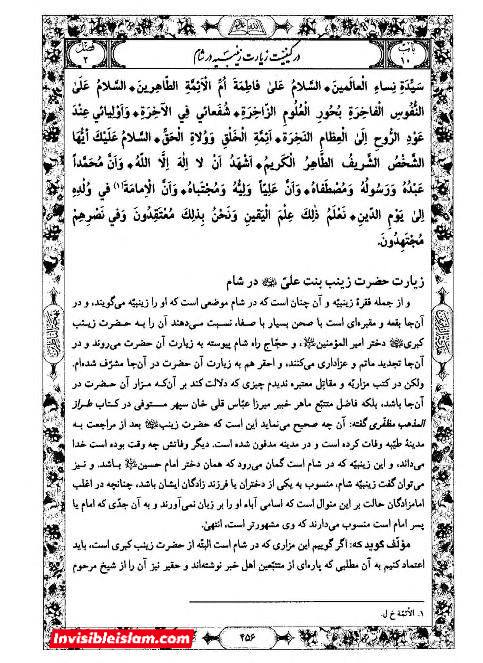 باب ۱۰
در کیفیّت زیارت زینبیّه در شام
فصل ۲
سَيِّدَةِ نِساءِ الْعالَمينَ٭ السَّلامُ عَلىٰ فاطِمَةَ أُمِّ الْأَئِمَّةِ الطّاهِرينَ٭ السَّلامُ عَلَى
النُّفُوسِ الْفاخِرَةِ بُحُورِ الْعُلُومِ الزّاخِرَةِ٭ شُفَعائي فِي الْآخِرَةِ٭ وَأَوْلِيائي عِنْدَ
عَوْدِ الرُّوحِ إِلَى الْعِظامِ النَّخِرَةِ٭ أَئِمَّةِ الْخَلْقِ وَوُلاةِ الْحَقِّ٭ السَّلامُ عَلَيْكَ أَيُّهَا
الشَّخْصُ الشَّريفُ الطّاهِرُ الْكَريمُ٭ أَشْهَدُ أَنْ لا إِلٰهَ إِلَّا اللّٰهُ٭ وَأَنَّ مُحَمَّداً
عَبْدُهُ وَرَسُولُهُ وَمُصْطَفاهُ٭ وَأَنَّ عَلِيّاً وَلِيُّهُ وَمُجْتَباهُ٭ وَأَنَّ الْإِمامَةَ(۱) في وُلْدِهِ
إِلىٰ يَوْمِ الدِّينِ٭ نَعْلَمُ ذٰلِكَ عِلْمَ الْيَقينِ وَنَحْنُ بِذٰلِكَ مُعْتَقِدُونَ وَفي نَصْرِهِمْ
مُجْتَهِدُونَ.
زیارت حضرت زینب بنت علیّ در شام
و از جمله فقرهٔ زینبیّه و آن چنان است که در شام موضعی است که او را زینبیّه می‌گویند، و در
آن‌جا بقعه و مقبره‌ای است با صحن بسیار با صفاء، نسبت می‌دهند آن را به حضرت زینب
کبری دختر امیر المؤمنین، و حجّاج راه شام پیوسته به زیارت آن حضرت می‌روند و در
آن‌جا تجدید ماتم و عزاداری می‌کنند، و احقر هم به زیارت آن حضرت در آن‌جا مشرّف شده‌ام.
ولکن در کتب مزاریّه و مقاتِل معتبره ندیدم چیزی که دلالت کند بر آن‌که مزار آن حضرت در
آن‌جا باشد، بلکه فاضل متتبّع ماهر خبیر میرزا عبّاس قلی خان سپهر مستوفی در کتاب طراز
المذهب مظفّری گفته: آن چه صحیح می‌نماید این است که حضرت زینب بعد از مراجعت به
مدینهٔ طیّبه وفات کرده است و در مدینه مدفون شده است. دیگر وفاتش چه وقت بوده است خدا
می‌داند، و این زینبیّه که در شام است گمان می‌رود که همان دختر امام حسین باشد. و نیز
می‌توان گفت زینبیّهٔ شام، منسوب به یکی از دختران یا فرزند زادگان ایشان باشد، چنانچه در اغلب
امامزادگان حالت بر این منوال است که اسامی آباء او را بر زبان نمی‌آورند و به آن جدّی که امام یا
پسر امام است منسوب می‌دارند که وی مشهورتر است، انتهیٰ.
مؤلّف گوید که: اگر گوییم این مزاری که در شام است البتّه از حضرت زینب کبری است، باید
اعتماد کنیم به آن مطلبی که پاره‌ای از متتبّعین اهل خبر نوشته‌اند و حقیر نیز آن را از شیخ مرحوم
۱. الأئمّة خ ل.
۴۵۶
Invisibleislam.com